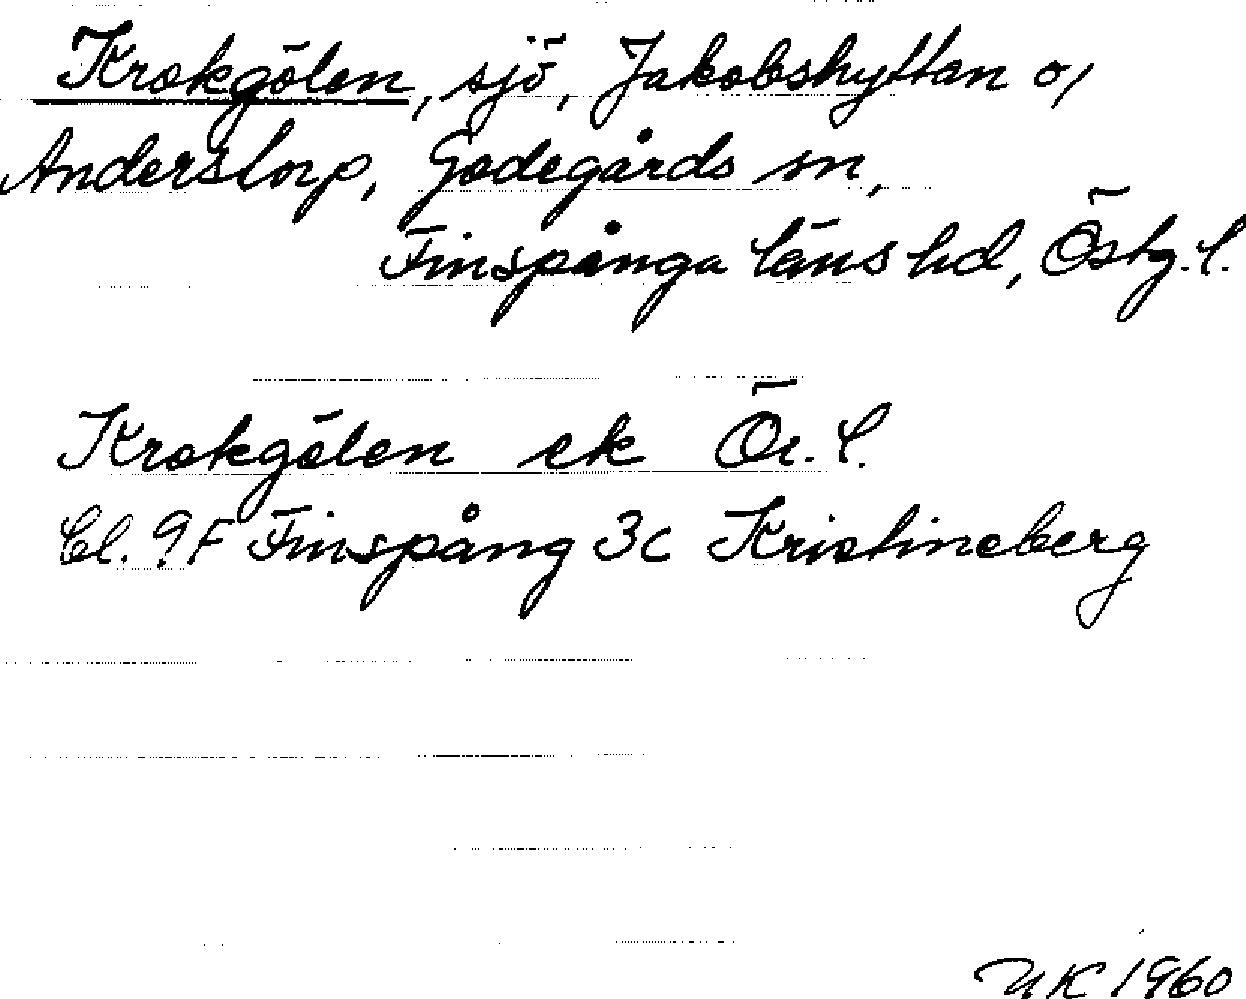 Krokgölen, sjö, Jakobshyttan o/
Anderstorp, Godegårds sn,
Finspånga läns hd, Östg. l.
Krokgölen ek Ör. l.
Bl. 9F Finspång 3c Kristineberg
UK 1960